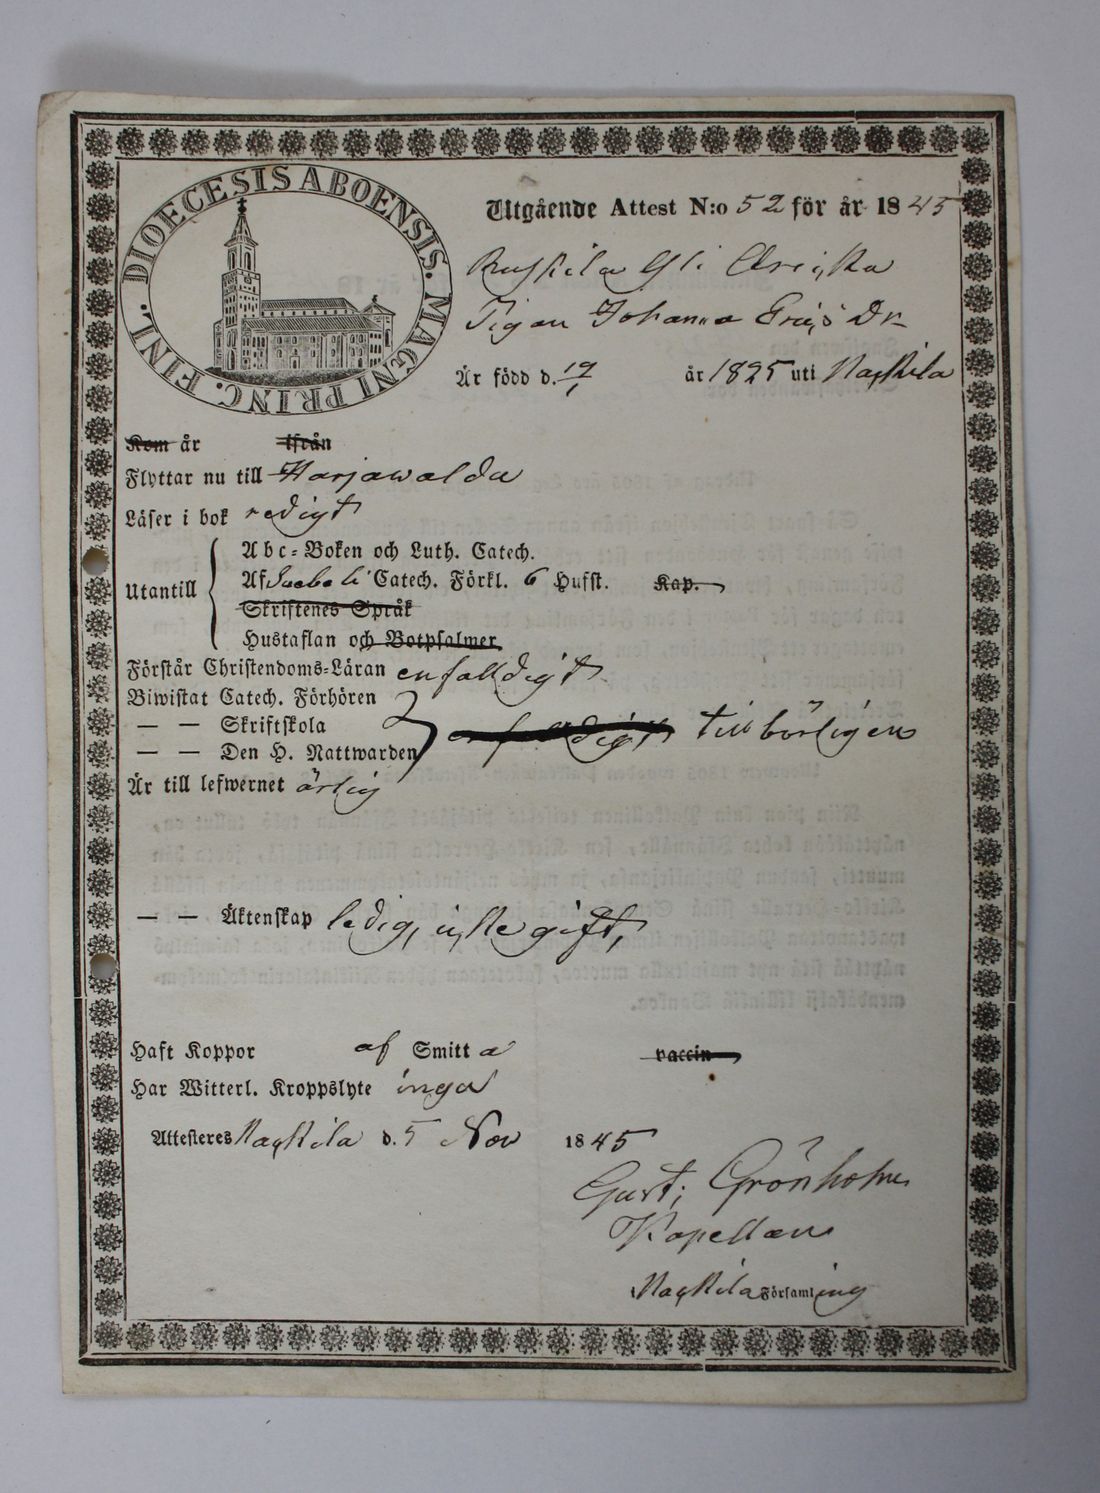 DIOECESIS ABOENSIS. MAGNI PRINC. FINL.
Utgående Attest N:o 52 för år 1845
Pigan Johanna Eriks Dr
Är född d. 19/1 år 1825 uti Nackila
Kom år ifrån
Flyttar nu till Harjawalda
Läser i bok redigt
Utantill
Abc-Boken och Luth. Catech.
Af Svebeli Catech. Förkl. 6 Hufst. Kap.
Skriftenes Språk
Hustaflan och Botpsalmer
Förstår Christendoms-Läran enfalldigt
Biwistat Catech. Förhören
— — Skriftskola
— — Den H. Nattwarden enfalldigt tillbörligen
Är till lefwernet ärlig
— — Äktenskap ledig, icke gift,
Haft Koppor af Smitta vaccin
Har Witterl. Kroppslyte inga
Attesteres Nackila d. 5 Nov 1845
Gust: Grönholm
Kapellan
Nackila Församling